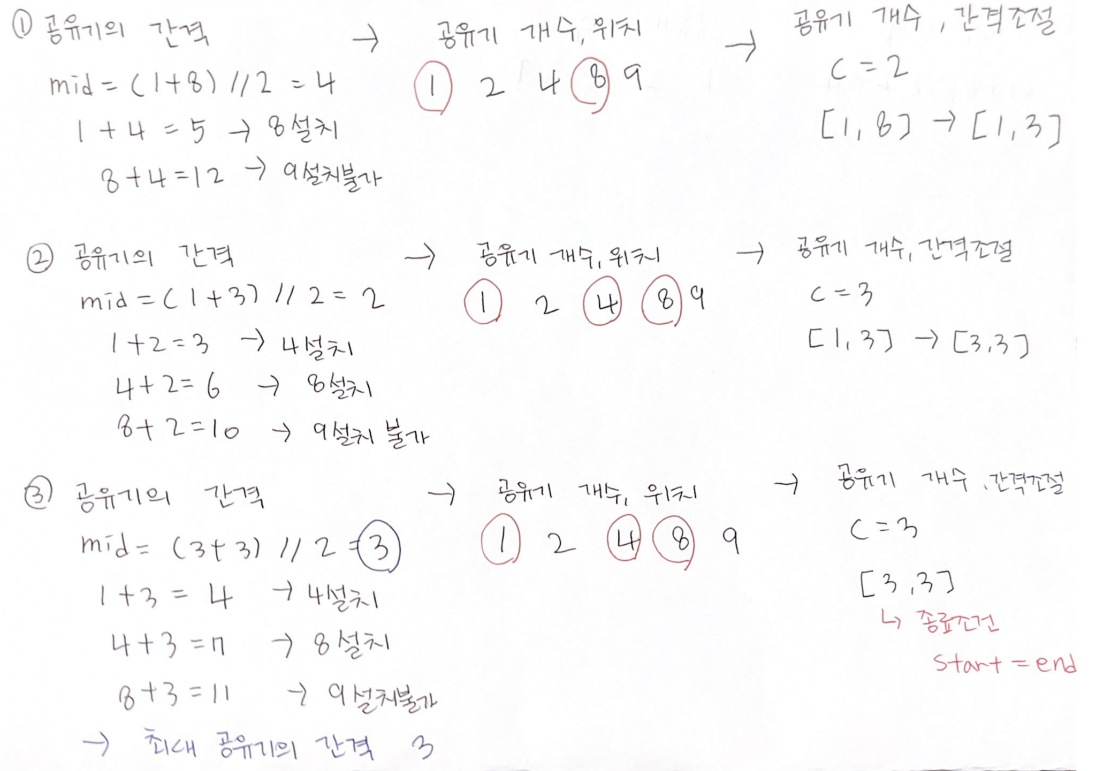 ① 공유기의 간격 → 공유기 개수, 위치 → 공유기 개수, 간격조절
mid = (1+8) // 2 = 4 1 2 4 8 9 C = 2
1 + 4 = 5 → 8설치 [1, 8] → [1, 3]
8+4=12 → 9설치불가
② 공유기의 간격 → 공유기 개수, 위치 → 공유기 개수, 간격조절
mid = (1+3) // 2 = 2 1 2 4 8 9 C = 3
1+2=3 → 4설치 [1, 3] → [3,3]
4+2=6 → 8설치
8+2=10 → 9설치 불가
③ 공유기의 간격 → 공유기 개수, 위치 → 공유기 개수, 간격조절
mid = (3+3) // 2 = 3 1 2 4 8 9 C = 3
1+3 = 4 → 4설치 [3,3]
↳ 종료조건
4+3=7 → 8설치 start = end
8+3=11 → 9설치불가
→ 최대 공유기의 간격 3